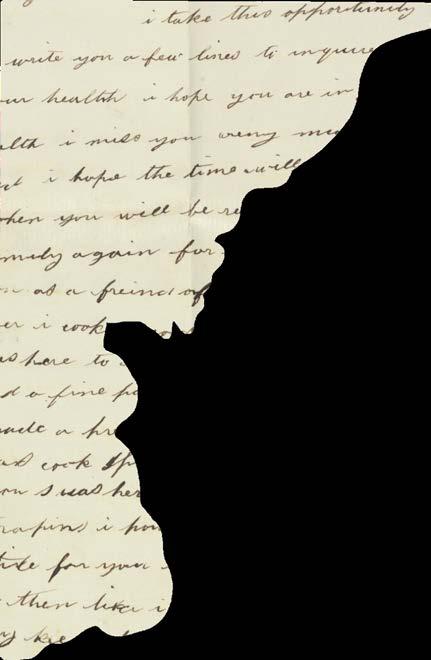 i take this opportunity
write you a few lines to inquire
ur health i hope you are in
alth i miss you weny mu
i hope the time will
when you will be re
amily again for
as a freind of
er i cook
as here to
d a fine
made a
cook
s was her
rapins i
for your
then like i